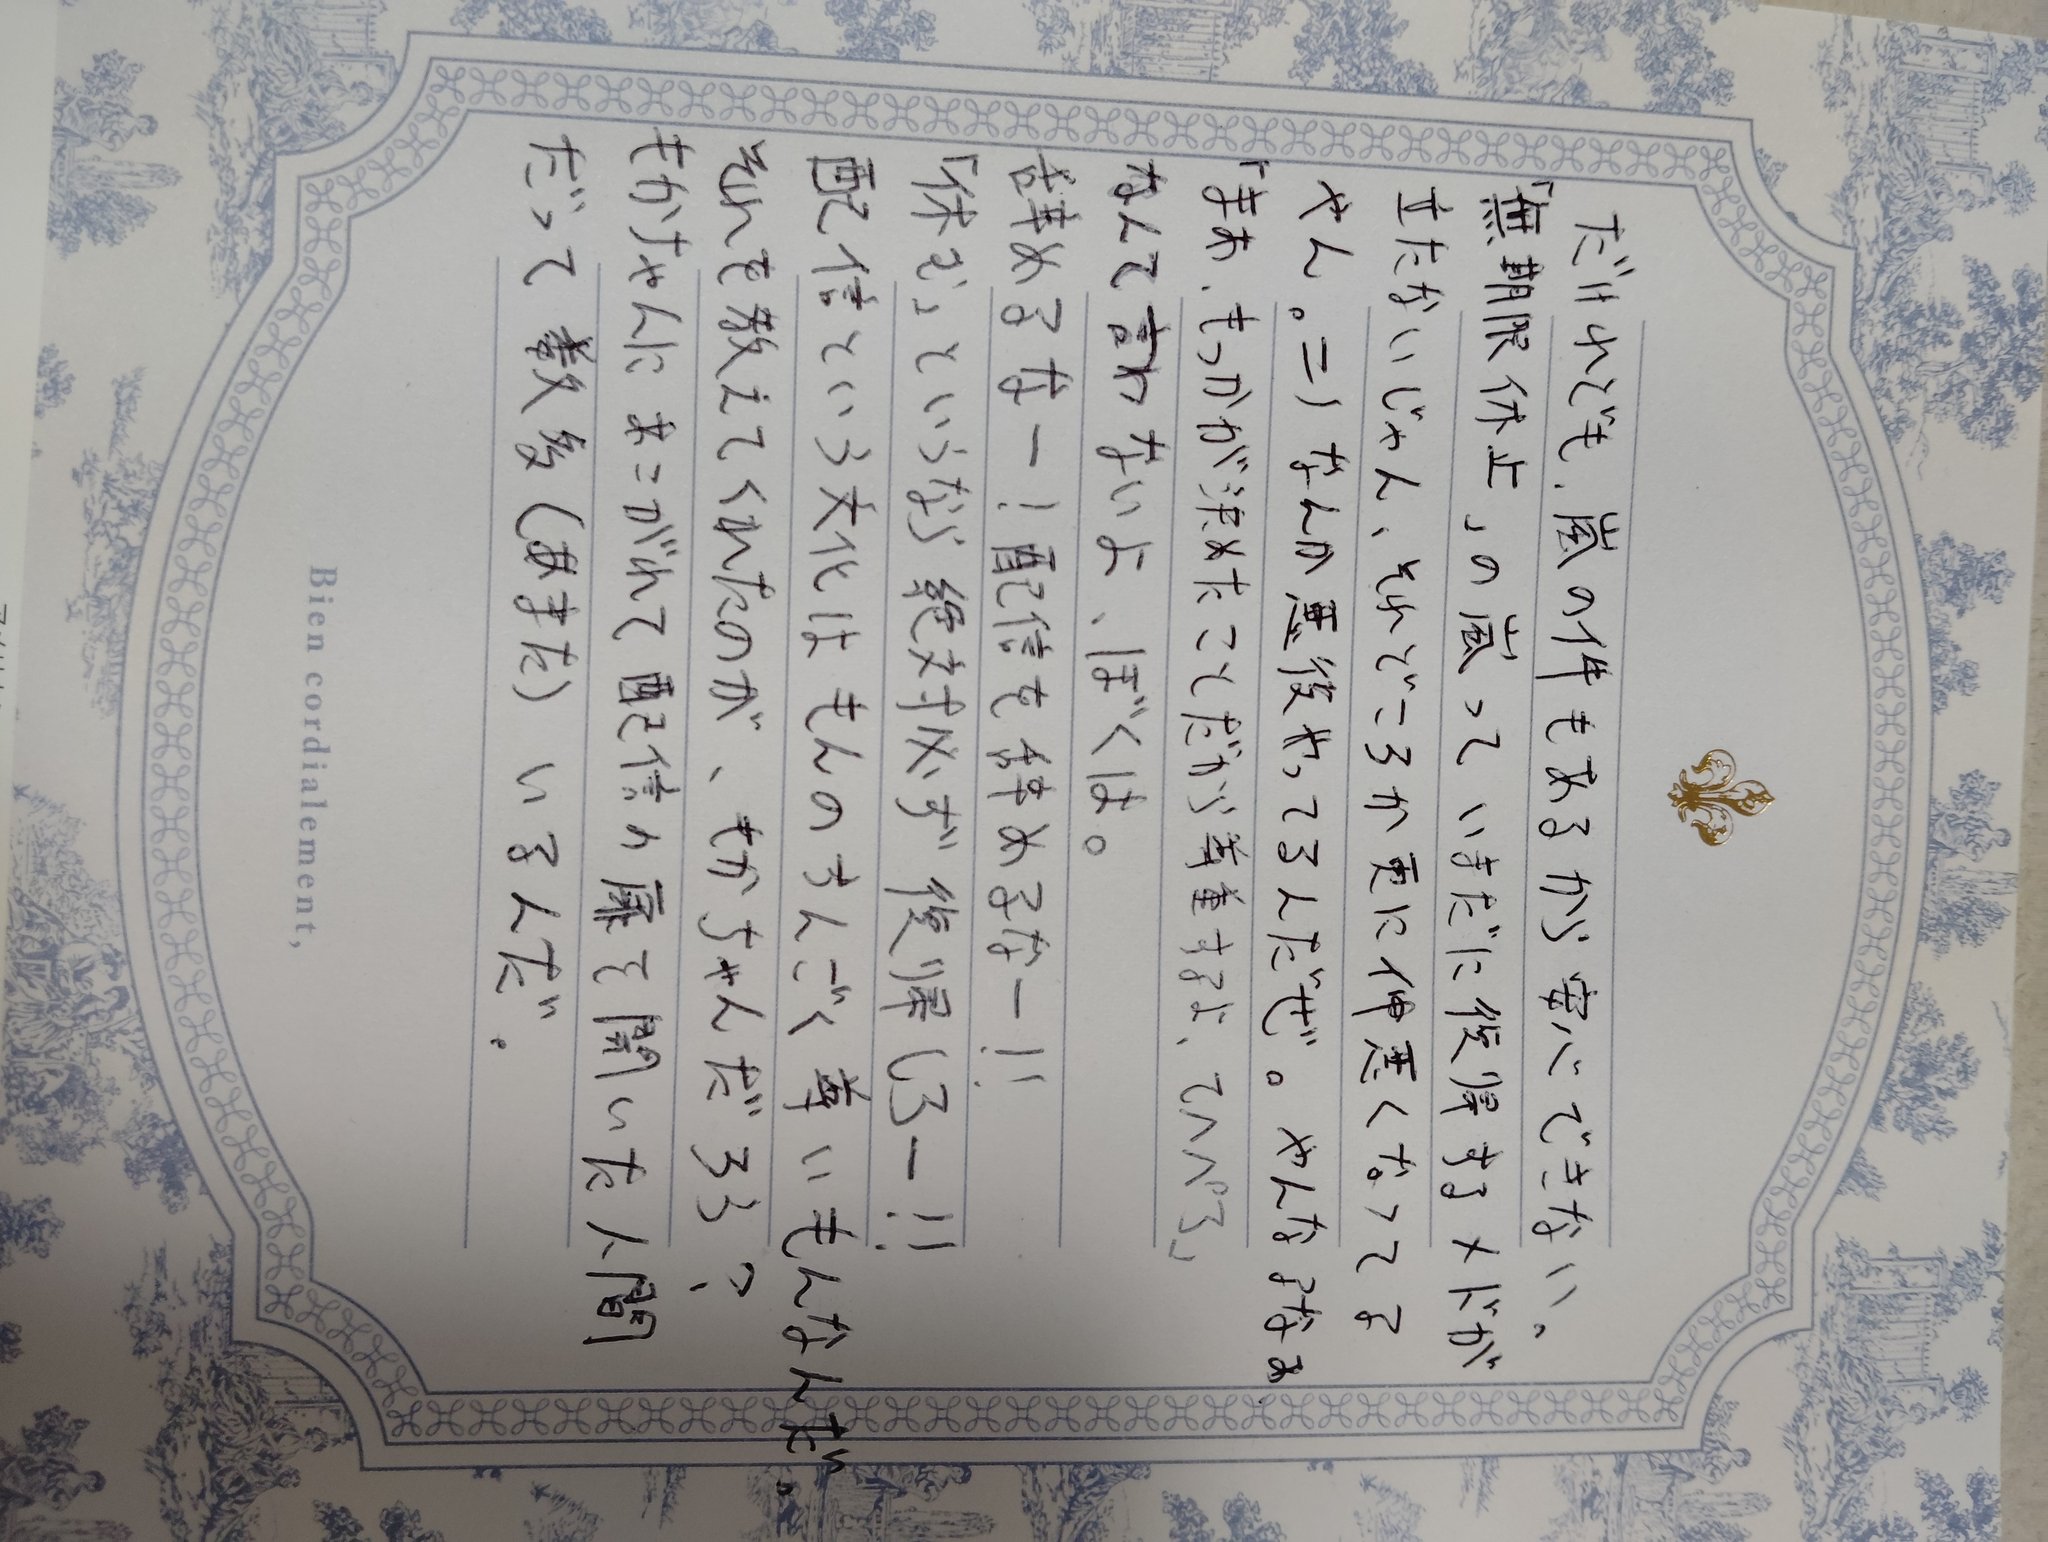 だけれども、嵐の件もあるから安心できない。
「無期限休止」の嵐っていまだに復帰するメドが
立たないじゃん、それどころか更に仲悪くなってる
やん。ニノなんか悪役やってるんだぜ。やんなるなぁ
「まぁ、もっかが決めたことだから尊重するよ、てへぺろ」
なんて言わないよ、ぼくは。
辞めるなー!配信を辞めるなー!!
「休む」というなら絶対必ず復帰しろー!!
配信という文化はもんのすんごく尊いもんなんだ。
それを教えてくれたのが、もかちゃんだろう?
もかちゃんにあこがれて配信の扉を開いた人間
だって数多(あまた)いるんだ。
Bien cordialement,